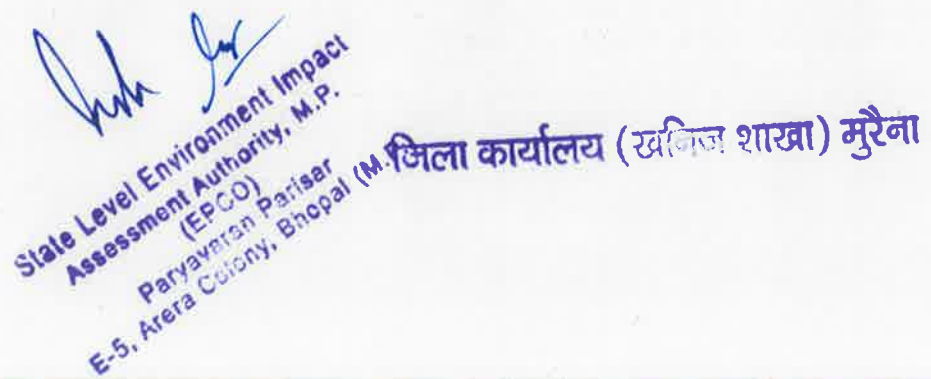 State Level Environment Impact
Assessment Authority, M.P.
(EPCO)
Paryavaran Parisar
E-5, Arera Colony, Bhopal (M.
जिला कार्यालय (खनिज शाखा) मुरैना